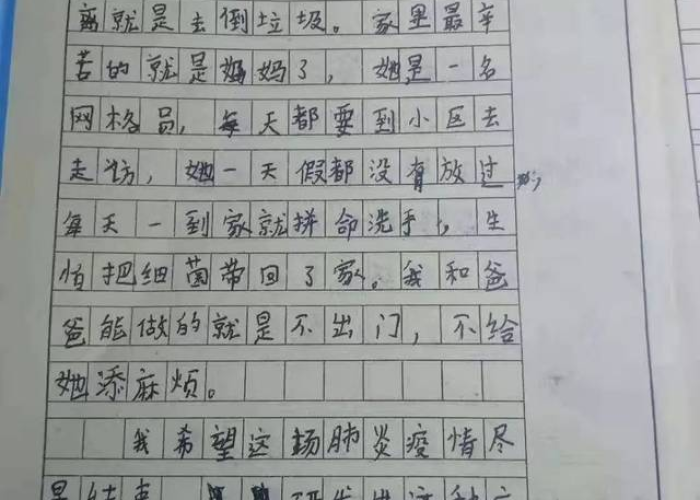 离就是去倒垃圾。家里最辛
苦的就是妈妈了，她是一名
网格员，每天都要到小区去
走访，她一天假都没有放过，
每天一到家就拼命洗手，生
怕把细菌带回了家。我和爸
爸能做的就是不出门，不给
她添麻烦。
我希望这场肺炎疫情尽
早结束